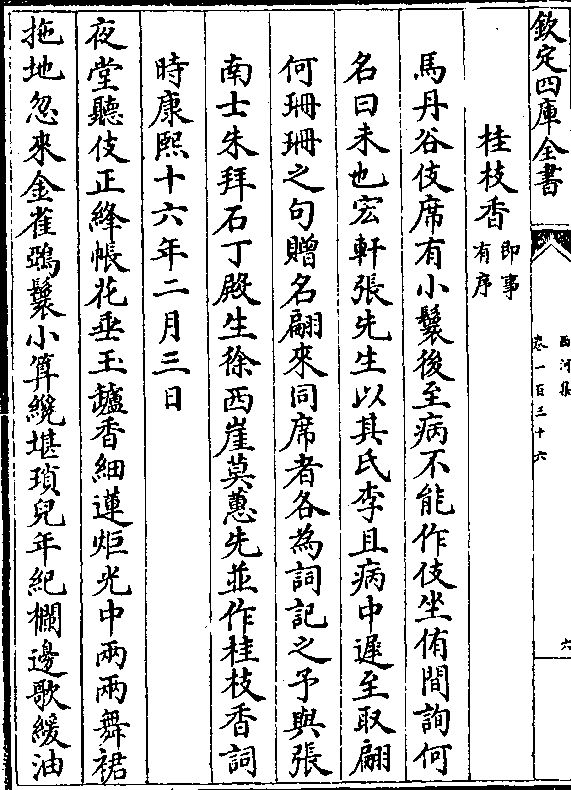 欽定四庫全書
西河集
卷一百三十六
六
桂枝香即事有序
馬丹谷伎席有小鬟後至病不能作伎坐侑間詢何
名曰未也宏軒張先生以其氏李且病中遲至取翩
何珊珊之句贈名翩來同席者各為詞記之予與張
南士朱拜石丁殿生徐西崖莫蕙先並作桂枝香詞
時康熙十六年二月三日
夜堂聽伎正絳帳花垂玉鑪香細蓮炬光中兩兩舞裙
拖地忽來金雀鵶鬟小算纔堪瑣兒年紀欄邊歌緩油